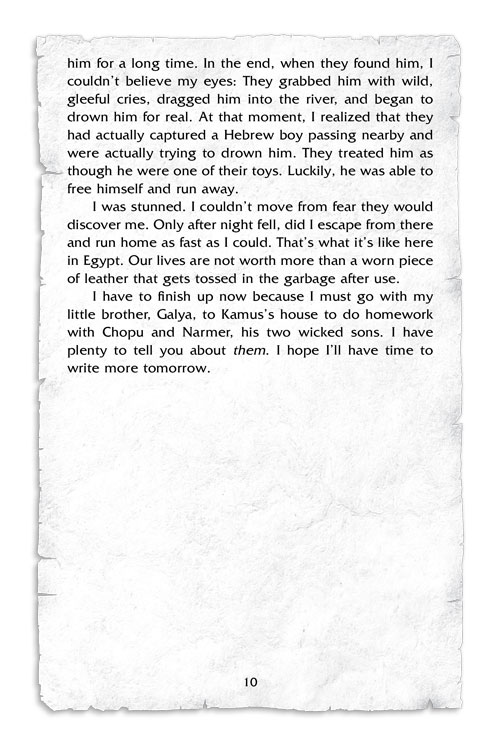 him for a long time. In the end, when they found him, I
couldn't believe my eyes: They grabbed him with wild,
gleeful cries, dragged him into the river, and began to
drown him for real. At that moment, I realized that they
had actually captured a Hebrew boy passing nearby and
were actually trying to drown him. They treated him as
though he were one of their toys. Luckily, he was able to
free himself and run away.
I was stunned. I couldn't move from fear they would
discover me. Only after night fell, did I escape from there
and run home as fast as I could. That's what it's like here
in Egypt. Our lives are not worth more than a worn piece
of leather that gets tossed in the garbage after use.
I have to finish up now because I must go with my
little brother, Galya, to Kamus's house to do homework
with Chopu and Narmer, his two wicked sons. I have
plenty to tell you about them. I hope I'll have time to
write more tomorrow.
10